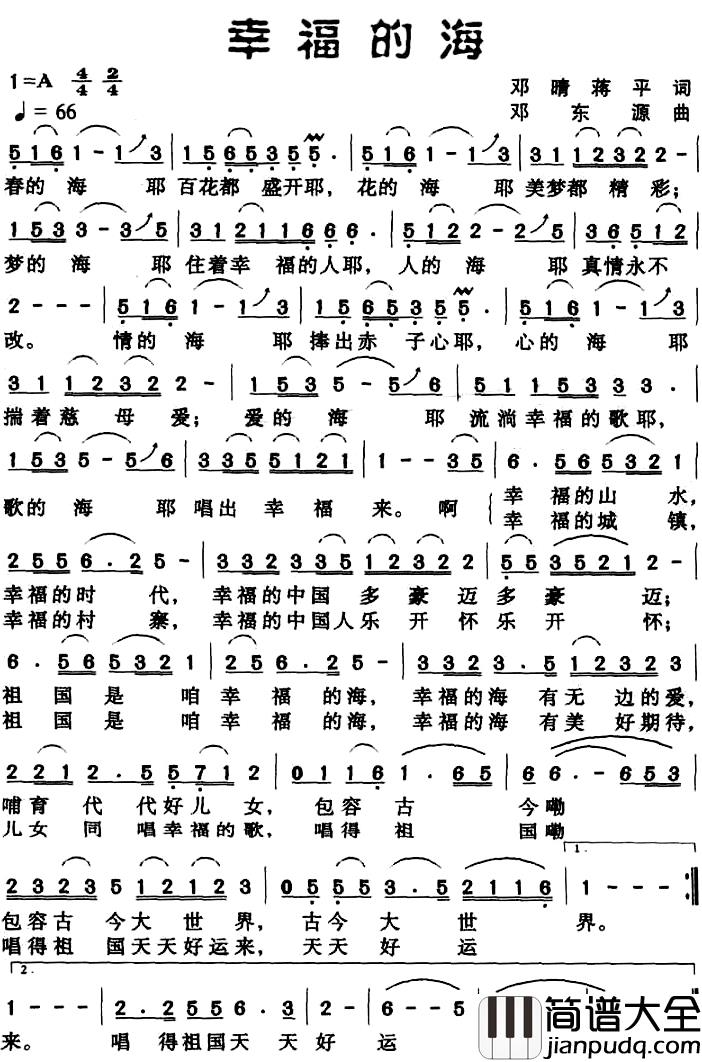 幸福的海
1=A 4/4 2/4
♩= 66
邓晴蒋平词
邓东源曲
5 1 6 1 - 1 3 | 1 5 6 5 3 5 5 . | 5 1 6 1 - 1 3 | 3 1 1 2 3 2 2 - |
春的海 耶 百花都 盛开耶，花的海 耶 美梦都 精彩；
1 5 3 3 - 3 5 | 3 1 2 1 1 6 6 6 . | 5 1 2 2 - 2 5 | 3 6 5 1 2 |
梦的海 耶 住着幸 福的人耶，人的海 耶真情永不
2 - - - | 5 1 6 1 - 1 3 | 1 5 6 5 3 5 5 . | 5 1 6 1 - 1 3 |
改。 情的海 耶 捧出赤 子心耶，心的海 耶
3 1 1 2 3 2 2 - | 1 5 3 5 - 5 6 | 5 1 1 1 5 3 3 3 . |
揣着慈 母 爱；爱的海 耶 流淌幸福的歌耶，
1 5 3 5 - 5 6 | 3 3 5 5 1 2 1 | 1 - - 3 5 | 6 . 5 6 5 3 2 1 |
歌的海 耶唱出 幸 福 来。啊 幸 福的山 水，
幸 福的城 镇，
2 5 5 6 . 2 5 - | 3 3 2 3 3 5 1 2 3 2 2 | 5 5 3 5 2 1 2 - |
幸福的时 代，幸福的中国 多 豪 迈多 豪 迈；
幸福的村 寨，幸福的中国人乐 开 怀乐 开 怀；
6 . 5 6 5 3 2 1 | 2 5 6 . 2 5 - | 3 3 2 3 . 5 1 2 3 2 |
祖 国是 咱 幸 福 的海，幸福的海 有无 边的爱，
祖 国是 咱 幸 福 的海，幸福的海 有美 好期待，
2 2 1 2 . 5 5 7 1 2 | 0 1 1 6 1 . 6 5 | 6 6 - . 6 5 3 |
哺育 代 代好儿 女，包容 古 今嘞
儿女 同 唱幸福的歌，唱得 祖 国嘞
2 3 2 3 5 1 2 1 2 3 | 0 5 5 5 3 . 5 2 1 1 6 | 1 - - - :‖
1.
包容古 今大 世 界，古今 大 世 界。
唱得祖 国天天好运来，天天 好 运
2.
1 - - - | 2 . 2 5 5 6 . 3 | 2 - | 6 - - 5 |
来。 唱 得祖国天 天 好 运
简谱大全
jianpudq.com